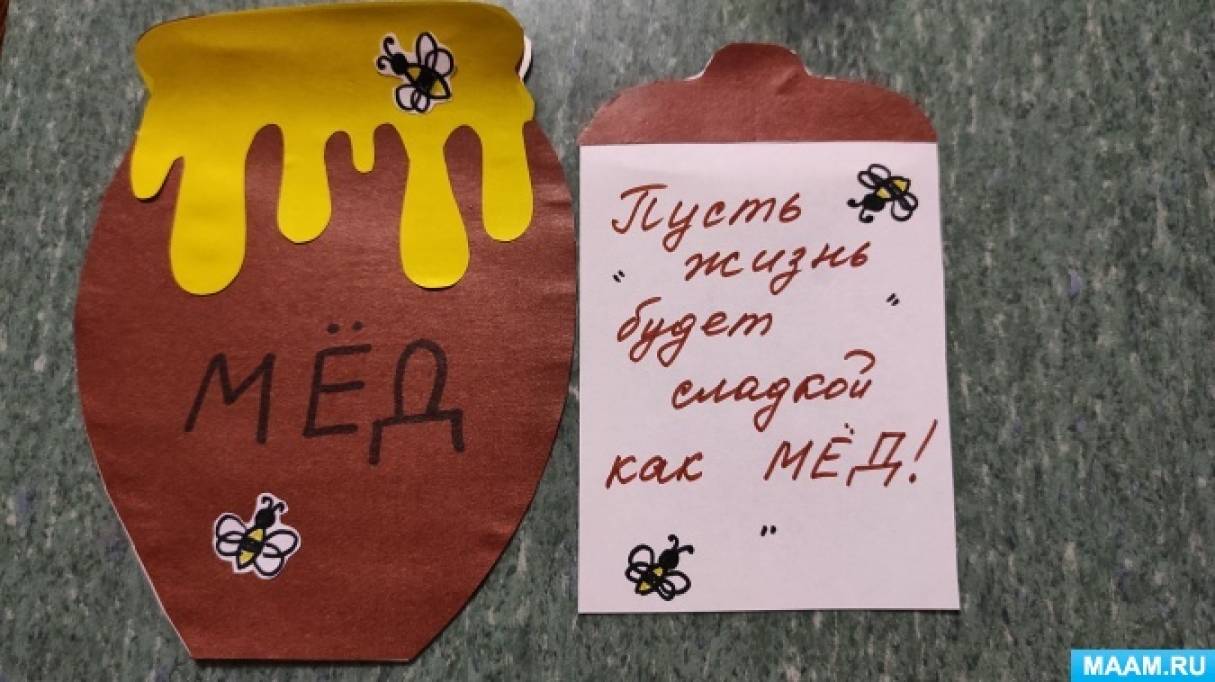 МЁД
Пусть
жизнь
будет
сладкой
как МЁД!
MAAM.RU